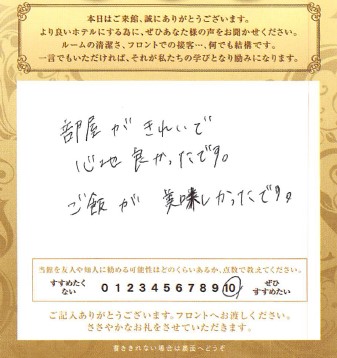 本日はご来館、誠にありがとうございます。
より良いホテルにする為に、ぜひあなた様の声をお聞かせください。
ルームの清潔さ、フロントでの接客…何でも結構です。
一言でもいただければ、それが私たちの学びとなり励みになります。
部屋がきれいで
心地良かったです。
ご飯が美味しかったです。
当館を友人や知人に勧める可能性はどのくらいあるか、点数で教えてください。
すすめたくない 0 1 2 3 4 5 6 7 8 9 10 ぜひすすめたい
ご記入ありがとうございます。フロントへお渡しください。
ささやかなお礼をさせていただきます。
書ききれない場合は裏面へどうぞ